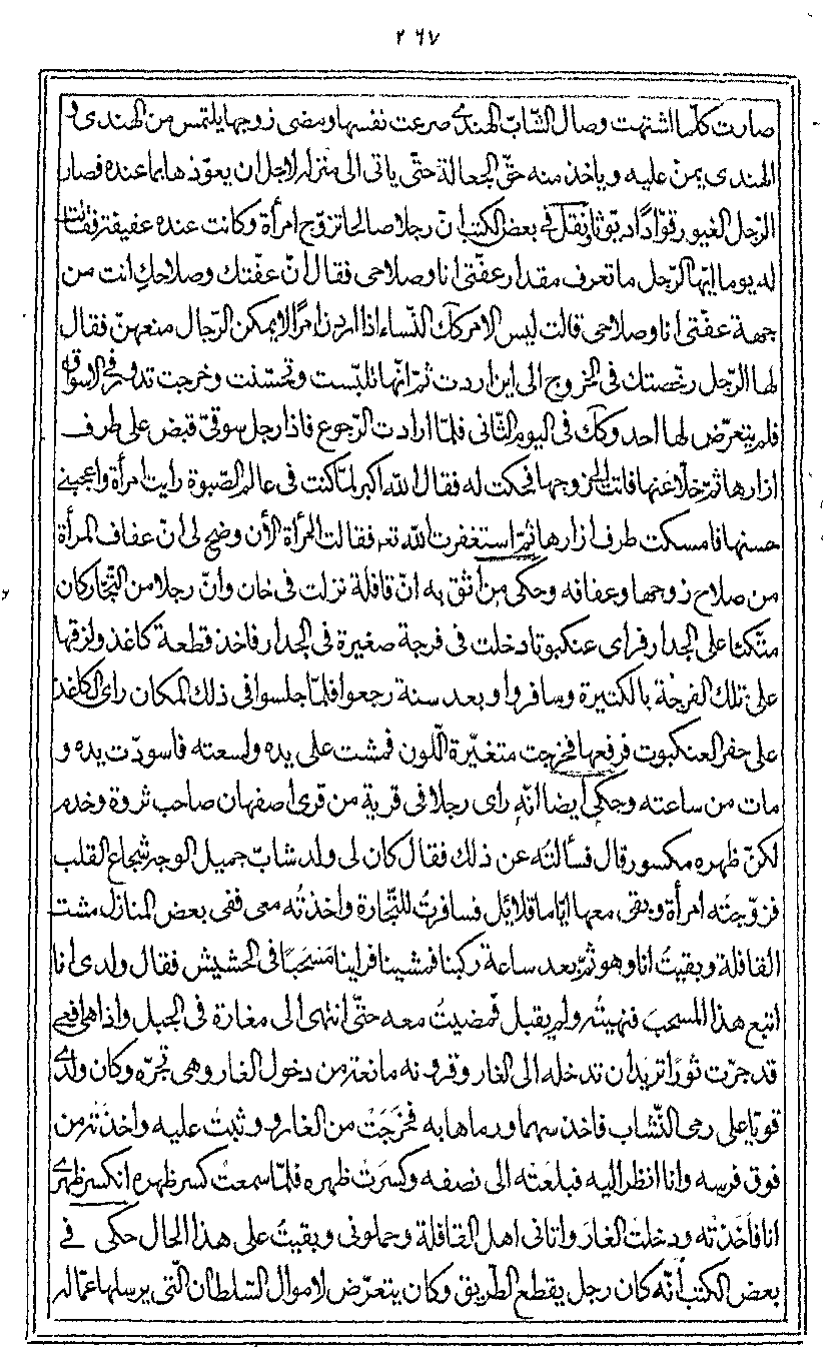 ٢٦٧
صارت كلّما اشتهت وصال الشّابّ الهندىّ صرعت نفسها ومضى زوجها يلتمس من الهندى و
الهندى يمنّ عليه وياخذ منه حقّ الجعالة حتّى ياتى الى منزله لاجل ان يعوّذها بما عنده فصار
الرّجل الغيور قوّادًا ديّوثا ونقل فى بعض الكتب انّ رجلا صالحا تزوّج امرأة وكانت عنده عفيفة فقالت
له يوما ايّها الرّجل ما تعرف مقدار عفّتى انا وصلاحى فقال انّ عفّتك وصلاحك انت من
جهة عفّتى انا وصلاحى قالت ليس الامر كك النّساء اذا اردن امرًا لا يمكن الرّجال منعهنّ فقال
لها الرّجل رخّصتك فى الخروج الى اين اردت ثمّ انّها تلبّست وتحسّنت وخرجت تدور فى الاسواق
فلم يتعرّض لها احد وكك فى اليوم الثّانى فلمّا ارادت الرّجوع فاذا رجل سوقىّ قبض على طرف
ازارها ثمّ خلّا عنها فاتت الى زوجها فحكت له فقال اللّه اكبر لمّا كنت فى عالم الصّبوة رايت امرأة واعجبنى
حسنها فامسكت طرف ازارها ثمّ استغفرت اللّه تعه فقالت المرأة الأن وضح لى انّ عفاف المرأة
من صلاح زوجها وعفافه وحكى من اثق به انّ قافلة نزلت فى خان وانّ رجلا من التّجّار كان
متّكئا على الجدار فراى عنكبوتا دخلت فى فرجة صغيرة فى الجدار فاخذ قطعة كاغذ ولزقها
على تلك الفرجة بالكتيرة وسافروا وبعد سنة رجعوا فلمّا جلسوا فى ذلك المكان راى الكاغذ
على حفر العنكبوت فرفعها فخرجت متغيّرة اللّون فمشت على يده ولسعته فاسودّت يده و
مات من ساعته وحكى ايضا انّه راى رجلا فى قرية من قرى اصفهان صاحب ثروة وخدم
لكنّ ظهره مكسور قال فسألتُه عن ذلك فقال كان لى ولد شابّ جميل الوجه شجاع القلب
فزوّجتُه امرأة وبقى معها ايّاما قلائل فسافرتُ للتّجارة واخذتُه معى ففى بعض المنازل مشت
القافلة وبقيتُ انا وهو ثمّ بعد ساعة ركبنا فمشينا فراينا مَسْحَبًا فى الحشيش فقال ولدى انا
اتبع هذا المسحبَ فنهيتُه ولم يقبل فمضيتُ معه حتّى انتهى الى مغارة فى الجبل واذا هى افعى
قد جرّت ثورًا تريد ان تدخله الى الغار وقرونه مانعة من دخول الغار وهى تجرّه وكان ولدى
قويّا على رمى النّشاب فاخذ سهما ورماها به فخرَجَتْ من الغار ووثبتْ عليه واخذته من
فوق فرسه وانا انظر اليه فبلعَتْه الى نصفه وكسرَتْ ظهره فلمّا سمعتُ كسر ظهره انكسر ظهرى
انا فاخَذتْه ودخلت الغارَ واتانى اهل القافلة وحملونى وبقيتُ على هذا الحال حكى فى
بعض الكتب انّه كان رجل يقطع الطّريق وكان يتعرّض لاموال السّلطان الّتى يرسلها عمّاله